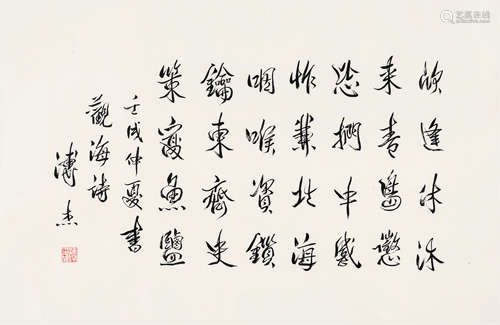 欣逢休沐
来青島懲
捫中感
怍兼北海
咽喉資鎖
鑰東齊史
策魚鹽
壬戌仲夏書
觀海詩
溥杰